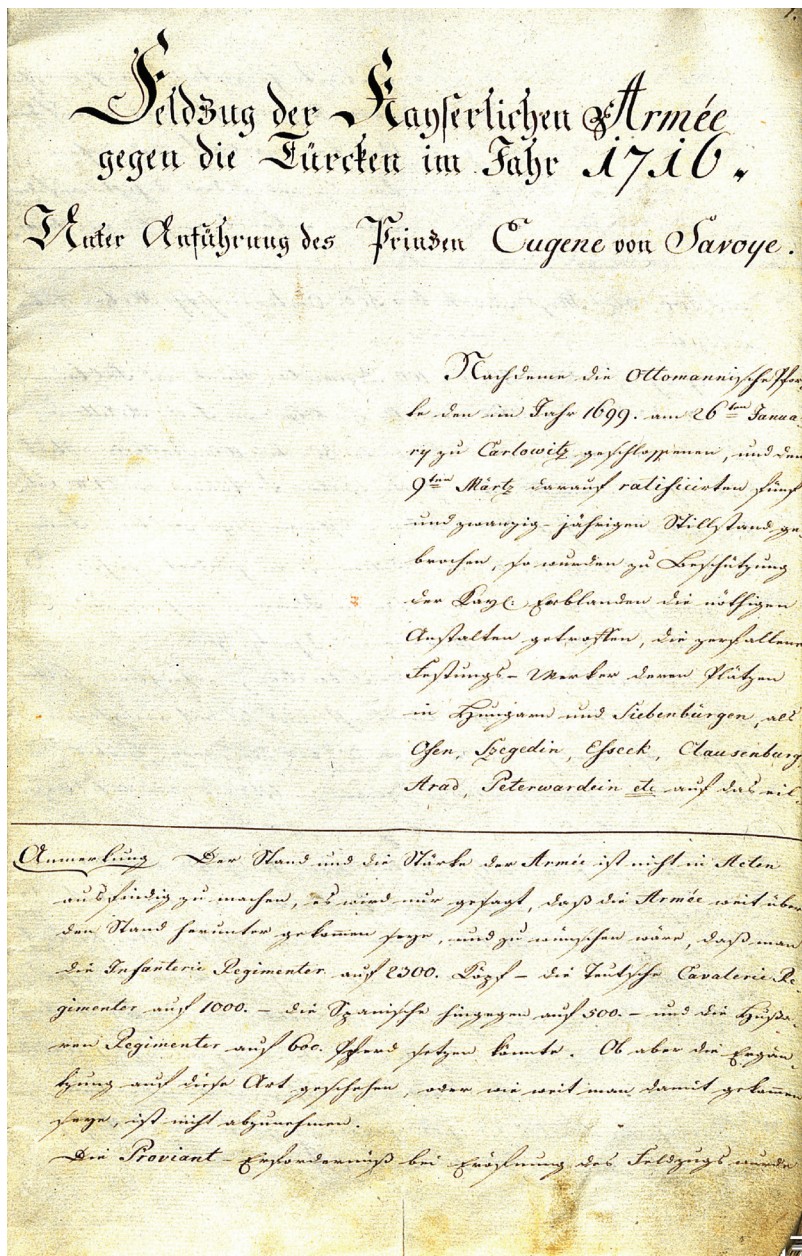 1.
Feldzug der Kayserlichen Armée
gegen die Türcken im Jahr 1716.
Unter Anführung des Prinzen Eugene von Savoye.
Nachdeme die Ottomannische Pfor-
te den im Jahr 1699. am 26ten Janua-
ry zu Carlowitz geschlossenen, und den
9ten Märtz darauf ratificirten fünf
und zwanzig-jährigen Stillstand ge-
brochen, so wurden zu Beschützung
der Kayl: Erblanden die nöthigen
Anstalten getroffen, die zerfallene
Festungs-Werker deren Plätzen
in Hungarn und Siebenbürgen, als
Ofen, Szegedin, Esseck, Clausenburg,
Arad, Peterwardein etc auf das eil-
Anmerkung Der Stand und die Stärke der Armée ist nicht in Acten
ausfindig zu machen, es wird nur gesagt, daß die Armée weit über
den Stand herunter gekommen seye, und zu wünschen wäre, daß man
die Infanterie Regimenter auf 2300. Köpf - die Teutsche Cavalerie Re-
gimenter auf 1000. - die Spanische hingegen auf 500. - und die Hußa-
ren Regimenter auf 600. Pferd setzen könnte. Ob aber die Ergän-
tzung auf diese Art geschehen, oder wie weit man damit gekommen
seye, ist nicht abzunehmen.
Die Proviant-Erfordernüß bei Eröfnung des Feldzugs wurde